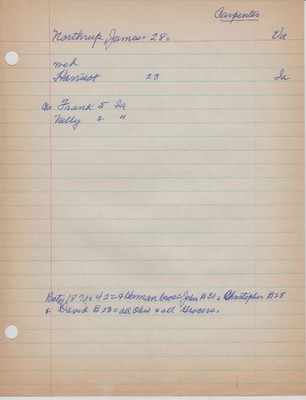 Carpenter
Northrup, James 28 Va
med
Harriet 23 Ia
Ch Frank 5 Ia
Nelly 2 "
Boty 1870 = 42 = 4 Herman bros = John B 31 = Christopher B 28
& David B 23 = all Ohio & all Grocers.